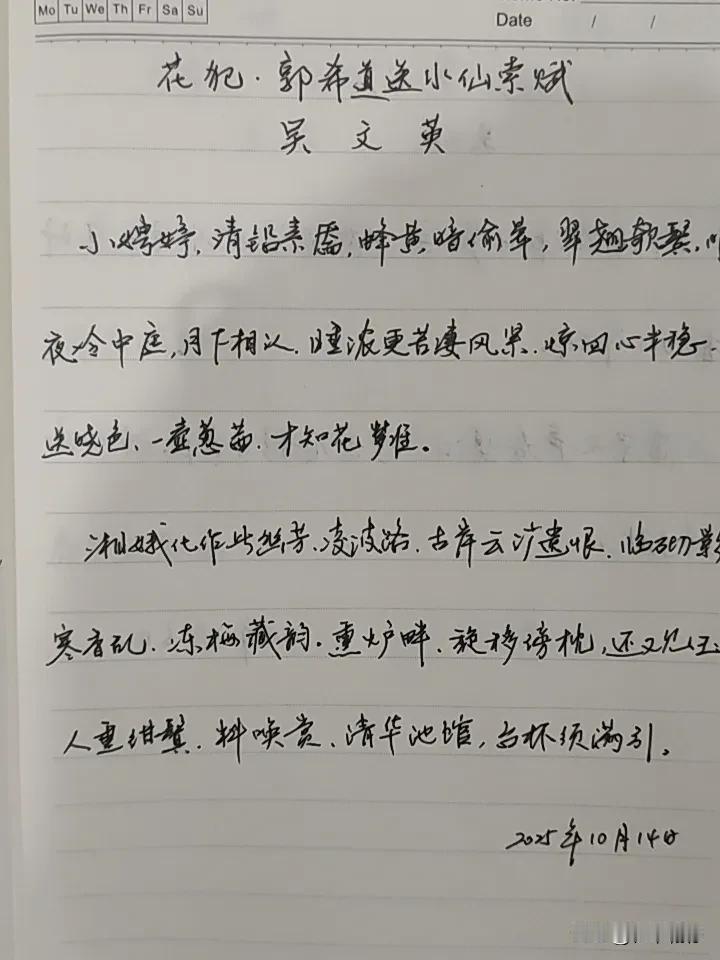 Mo Tu We Th Fr Sa Su
Date / /
花犯·郭希道送水仙索赋
吴文英
小娉婷,清铅素靥,蜂黄暗偷晕,翠翘欹鬓,
夜冷中庭,月下相认,睡浓更苦凄风紧,惊回心半稳,
送晓色、一壶葱茜,才知花梦准。
湘娥化作此幽芳,凌波路,古岸云沙遗恨,临砌影
寒香乱、冻梅藏韵。熏炉畔、旋移傍枕,还又见玉
人垂绀鬒,料唤赏、清华池馆,台杯须满引。
2025年10月14日